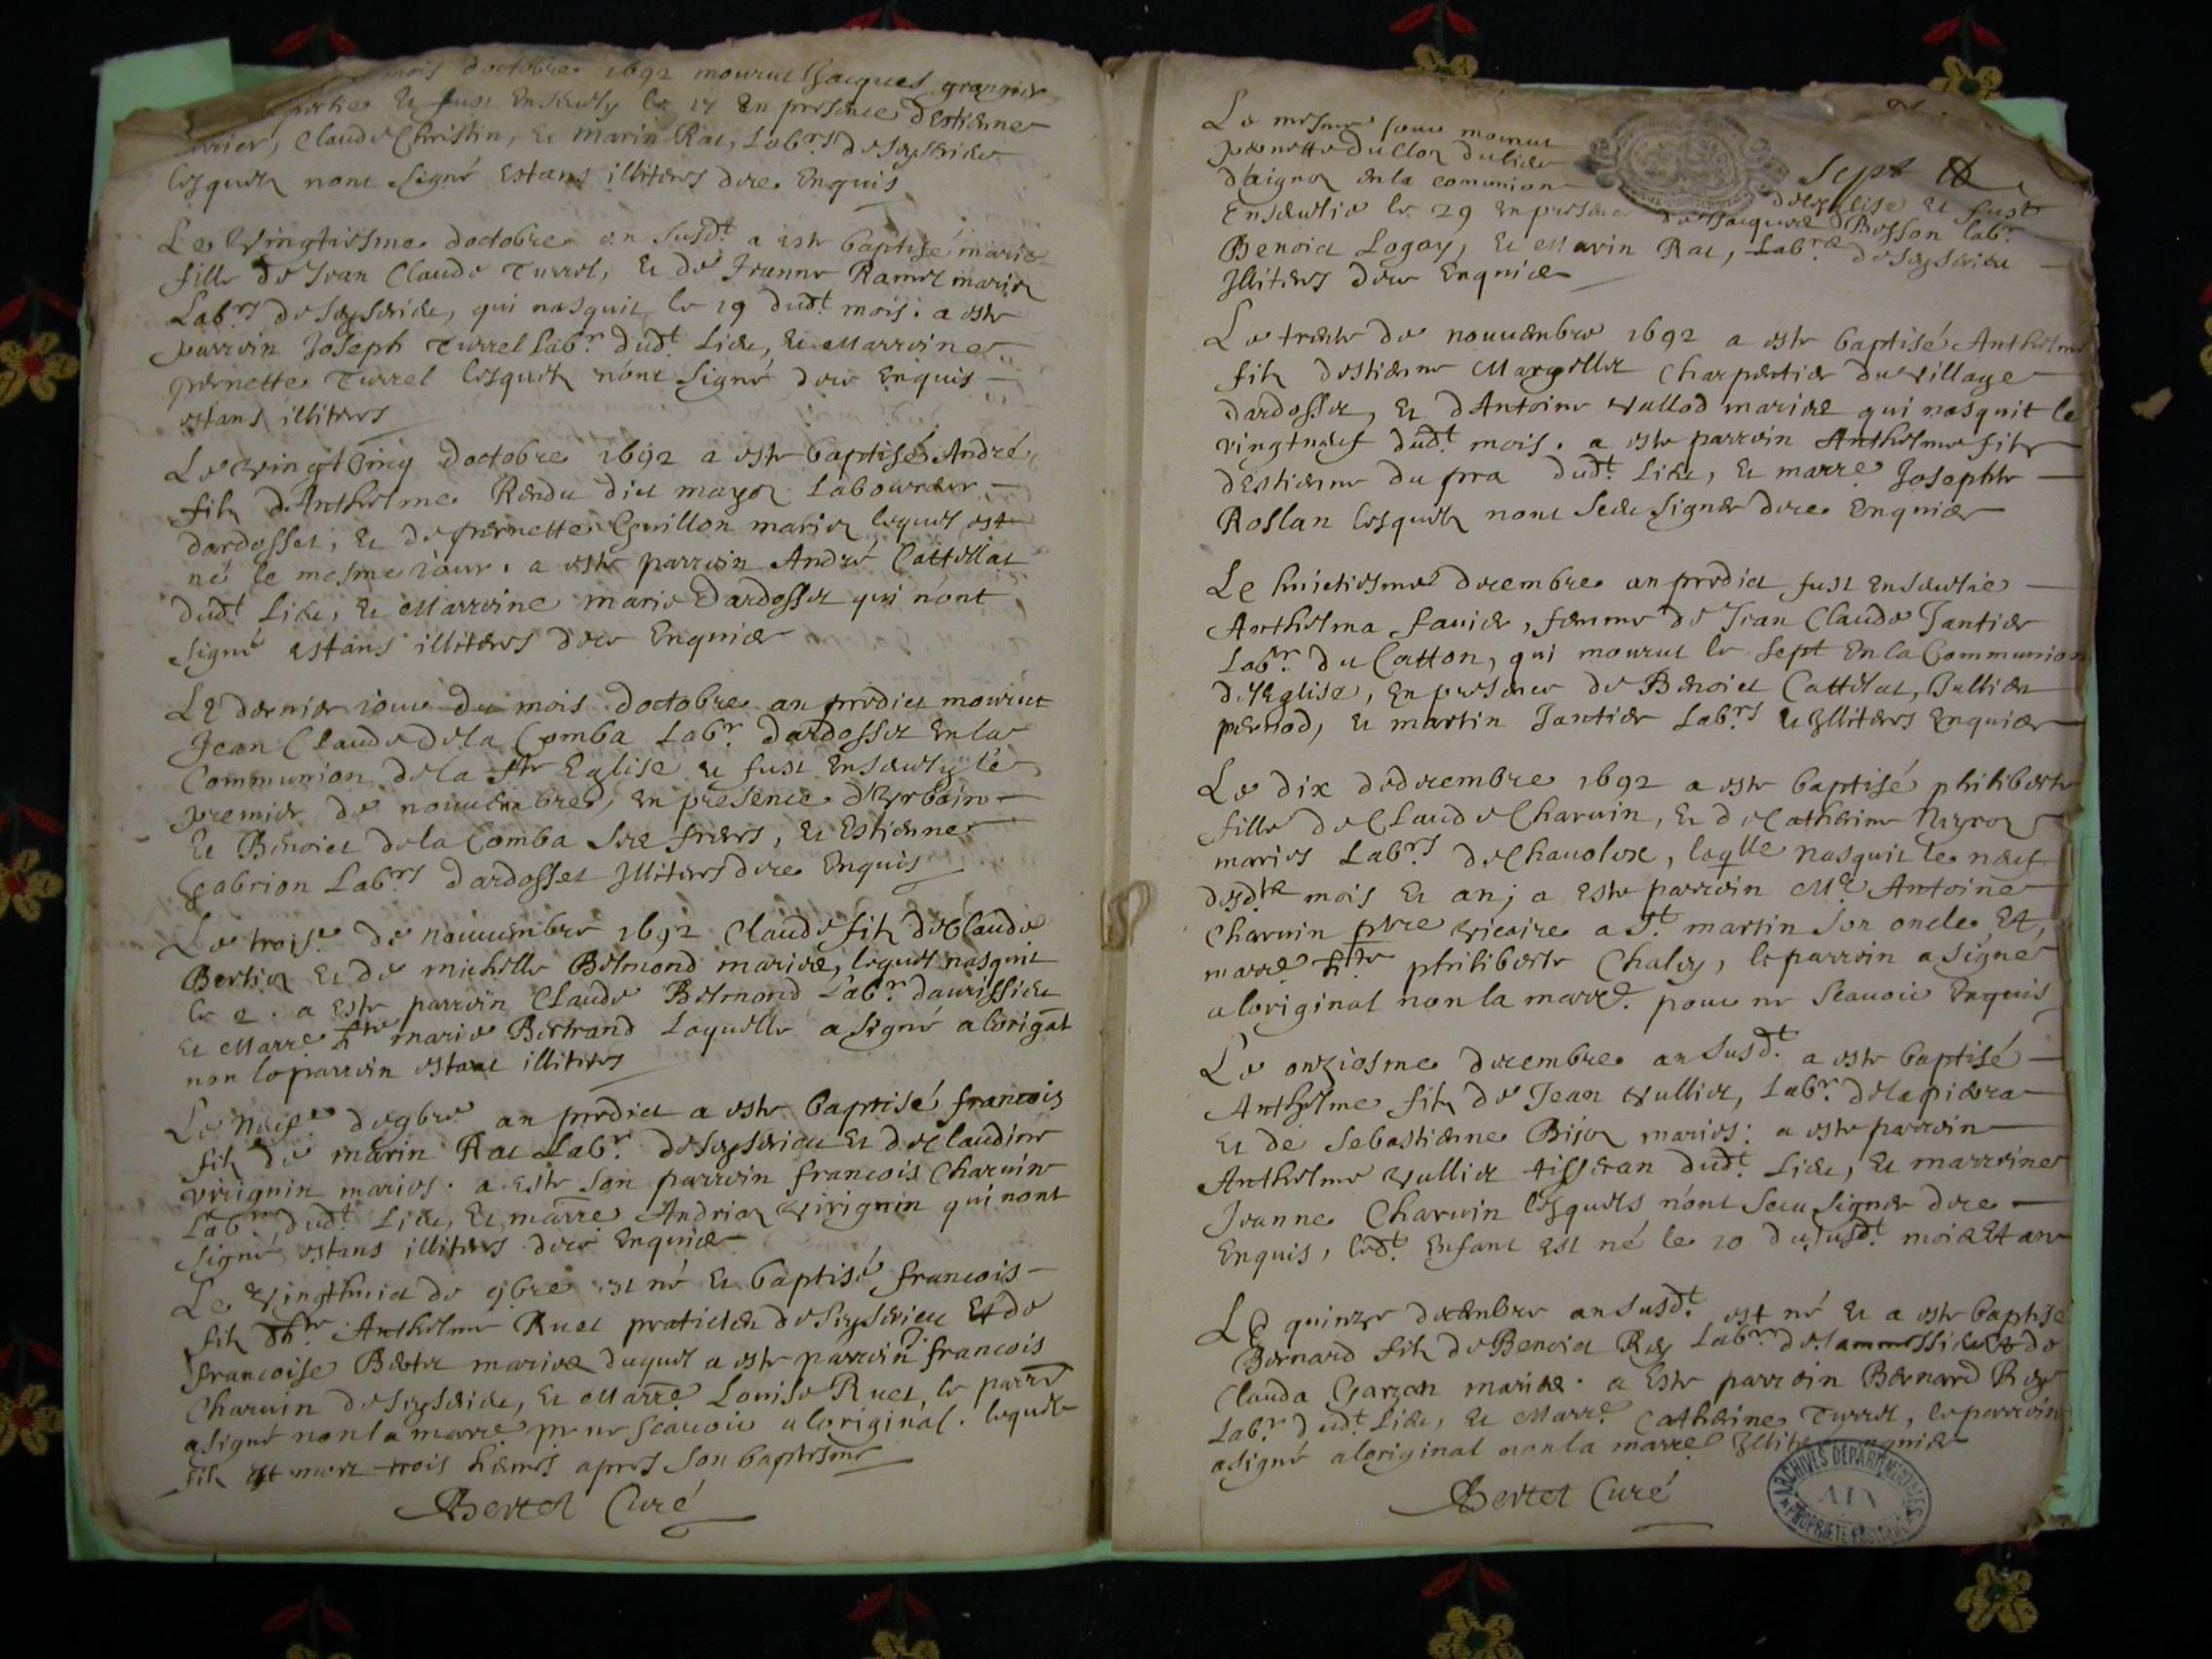 mois doctobre 1692 mourut Jacques grangier
et fust Ensevely le 17 En presence dEstienne
Claude Christin, et Marin Rat, Labrs de Seyserieu
lesquelz nont signé Estans illiteres dece Enquis
Le Vingtiesme doctobre an susdt a este baptisé marie
fille de Jean Claude Turrel, et de Jeanne Ramel mariez
Labrs de Seyserieu, qui nasquit le 19 dudt mois. a este
parrein Joseph Turrel labr dudt Lieu, et Marreine
pernette Turrel lesquelz nont signé dece Enquis
estans illiteres
Le Vingt Cinq doctobre 1692 a este baptisé André
filz dAnthelme Rendu dict mayoz Laboureur
dardosset, et de pernette Guillon mariez lequel est
né le mesme iour. a este parrein André Cattellat
dudt Lieu, et Marreine marie Dardosset qui nont
signé estans illiteres dece Enquis
Le dernier iour du mois doctobre an prédict mourut
Jean Claude dela Comba Labr dardosset En la
Communion dela ste Eglise et fust Ensevely le
premier de nouembre, en presence dVrbain
et Benoict dela Comba ses freres, et Estienne
Gabrion Labrs dardosset Illiteres dece Enquis
Le troise de nouembre 1692 Claude filz de Claude
Bertier et de michelle Belmond mariez, lequel nasquit
le 2. a este parrein Claude Belmond Labr daurissieu
et Marre hte marie Bertrand Laquelle a signé a lorigal
non le parrein estant illiteres
Le Neufe de 9bre an prédict a este baptisé francois
filz de marin Rat Labr de Seyserieu et de Claudine
virignin mariés. a este son parrein francois Charuin
Labr dudt Lieu, et marre Andriaz Virignin qui nont
signé estans illiteres dece Enquis
Le Vingthuict de 9bre est né et baptisé francois
filz dhte Anthelme Ruet praticien de Seyserieu Et de
francoise Bertet mariez duquel a este parrein francois
Charuin de Seyserieu, et Marre Louise Ruet, le parre
a signé non la marre pr ne scauoir a loriginal. lequel
filz est mort trois heures apres son baptesme
Bertet Curé
Sept
Le mesme iour mourut
pernette du Cloz du lieu
daignoz en la comunion
de leglise et fust
Ensevelie le 29 en presence de Jacques Bosson labr
Benoict Logoy, et Marin Rat, Labrs de Seyserieu
Illiteres dece Enquis
Le trente de nouuembre 1692 a este baptisé Anthelme
filz destienne Margellet Charpentier du village
dardosset, et dAntoine Vullod mariez qui nasquit le
vingtneuf dudt mois. a este parrein Anthelme filz
dEstienne du pra dudt Lieu, et marre Josephte
Roslan lesquelz nont sceu signer dece Enquis
Le huictiesme decembre an prédict fust Enseuelie
Anthelma fauier, femme de Jean Claude Jantier
Labr du Catton, qui mourut le sept En la Communion
de lEglise, en presence de Benoict Cattelat, Jullien
pernod, et martin Jantier Labrs et Illiteres Enquis
Le dix de decembre 1692 a este baptisé philiberte
fille de Claude Charuin, et de Catherine Neyroz
mariés Labrs de Chauolex, laqlle nasquit le neuf
desdts mois et an; a este parrein Me Antoine
Charuin pbre vicaire a St martin son oncle Et,
marre hte philiberte Chaley, le parrein a signé
a loriginal non la marre. pour ne scauoir Enquis
Le onziesme decembre an susdt a este baptisé
Anthelme filz de Jean Vulliet, Labr dela piera
et de Sebastienne Bijoz mariés: a este parrein
Anthelme Vulliet tisseran dudt Lieu, et marreine
Jeanne Charuin lesquels nont sceu signer dece
Enquis, ledt Enfant est né le 10 du susdt mois Et an
Le quinze decembre an susdt est né et a este baptisé
Bernard filz de Benoict Rey Labr de Et de
Clauda Garzon mariés. a este parrein Bernard Rey
Labr dudt Lieu, et Marre Catherine Turrel, le parrein
a signé a loriginal non la marre
Bertet Curé
ARCHIVES DEPARTEMENTALES
AIN
PROPRIETE PUBLIQUE